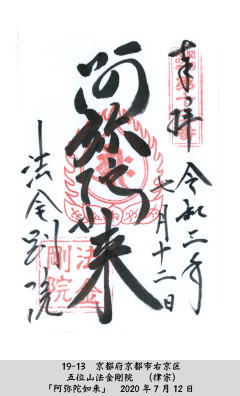 奉拝
令和二年
七月十二日
阿弥陀如来
法金剛院
法金
剛院
19-13　京都府京都市右京区
五位山法金剛院　（律宗）
「阿弥陀如来」　2020年7月12日